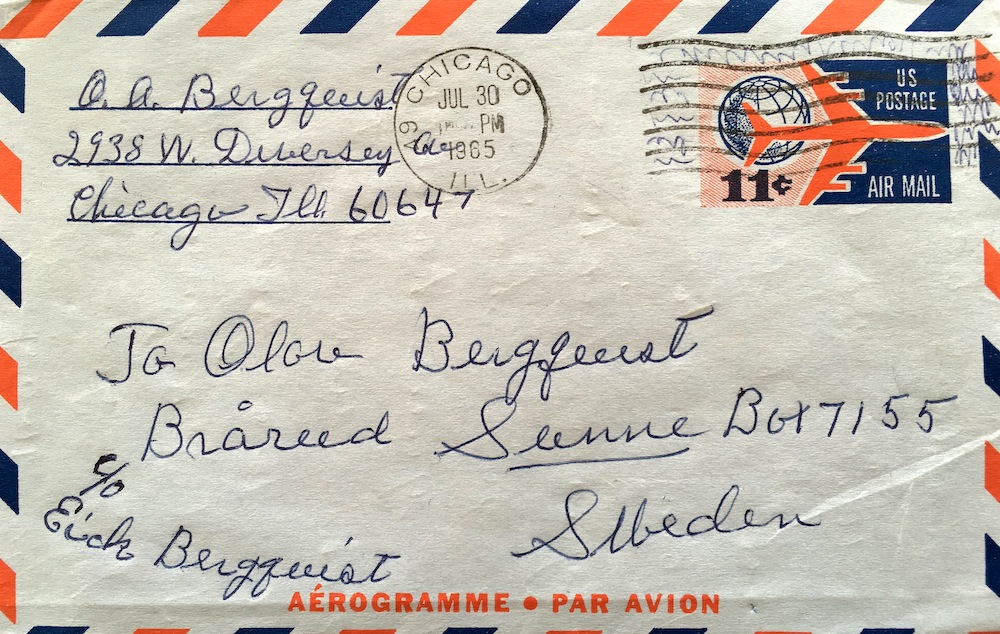 O. A. Bergquist
2938 W. Diversey Av
Chicago Ill. 60647
CHICAGO
JUL 30
PM
1965
ILL.
US
POSTAGE
11¢
AIR MAIL
To Olov Bergquist
Bråred Sunne Box 7155
c/o
Erick Bergquist
Sweden
AÉROGRAMME • PAR AVION